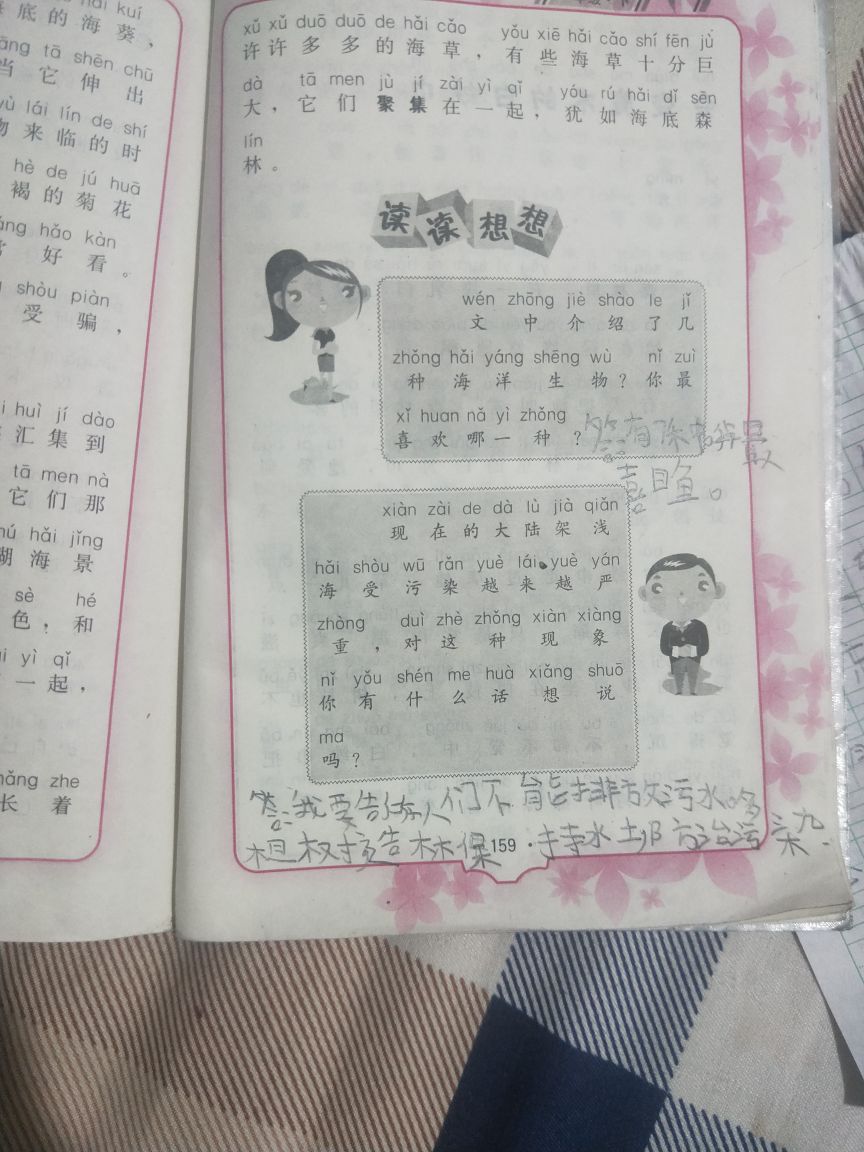 hǎi kuí
底的海葵，
āng tā shēn chū
当它伸出
lái lín de shí
物来临的时
hè de jú huā
褐的菊花
háng hǎo kàn
常好看。
shòu piàn
受骗，
huì jí dào
汇集到
tā men nà
它们那
hú hǎi jǐng
湖海景
sè hé
色，和
yì qǐ
一起，
zhǎng zhe
长着
xǔ xǔ duō duō de hǎi cǎo yǒu xiē hǎi cǎo shí fēn jù
许许多多的海草，有些海草十分巨
dà tā men jù jí zài yì qǐ yóu rú hǎi dǐ sēn
大，它们聚集在一起，犹如海底森
lín
林。
读读想想
wén zhōng jiè shào le jǐ
文中介绍了几
zhǒng hǎi yáng shēng wù nǐ zuì
种海洋生物？你最
xǐ huan nǎ yì zhǒng
喜欢哪一种？
答：有
喜 鱼。
xiàn zài de dà lù jià qiǎn
现在的大陆架浅
hǎi shòu wū rǎn yuè lái yuè yán
海受污染越来越严
zhòng duì zhè zhǒng xiàn xiàng
重，对这种现象
nǐ yǒu shén me huà xiǎng shuō
你有什么话想说
ma
吗？
答：我要告诉人们不能排放污水
植树造林保持水土 防治污染.
159